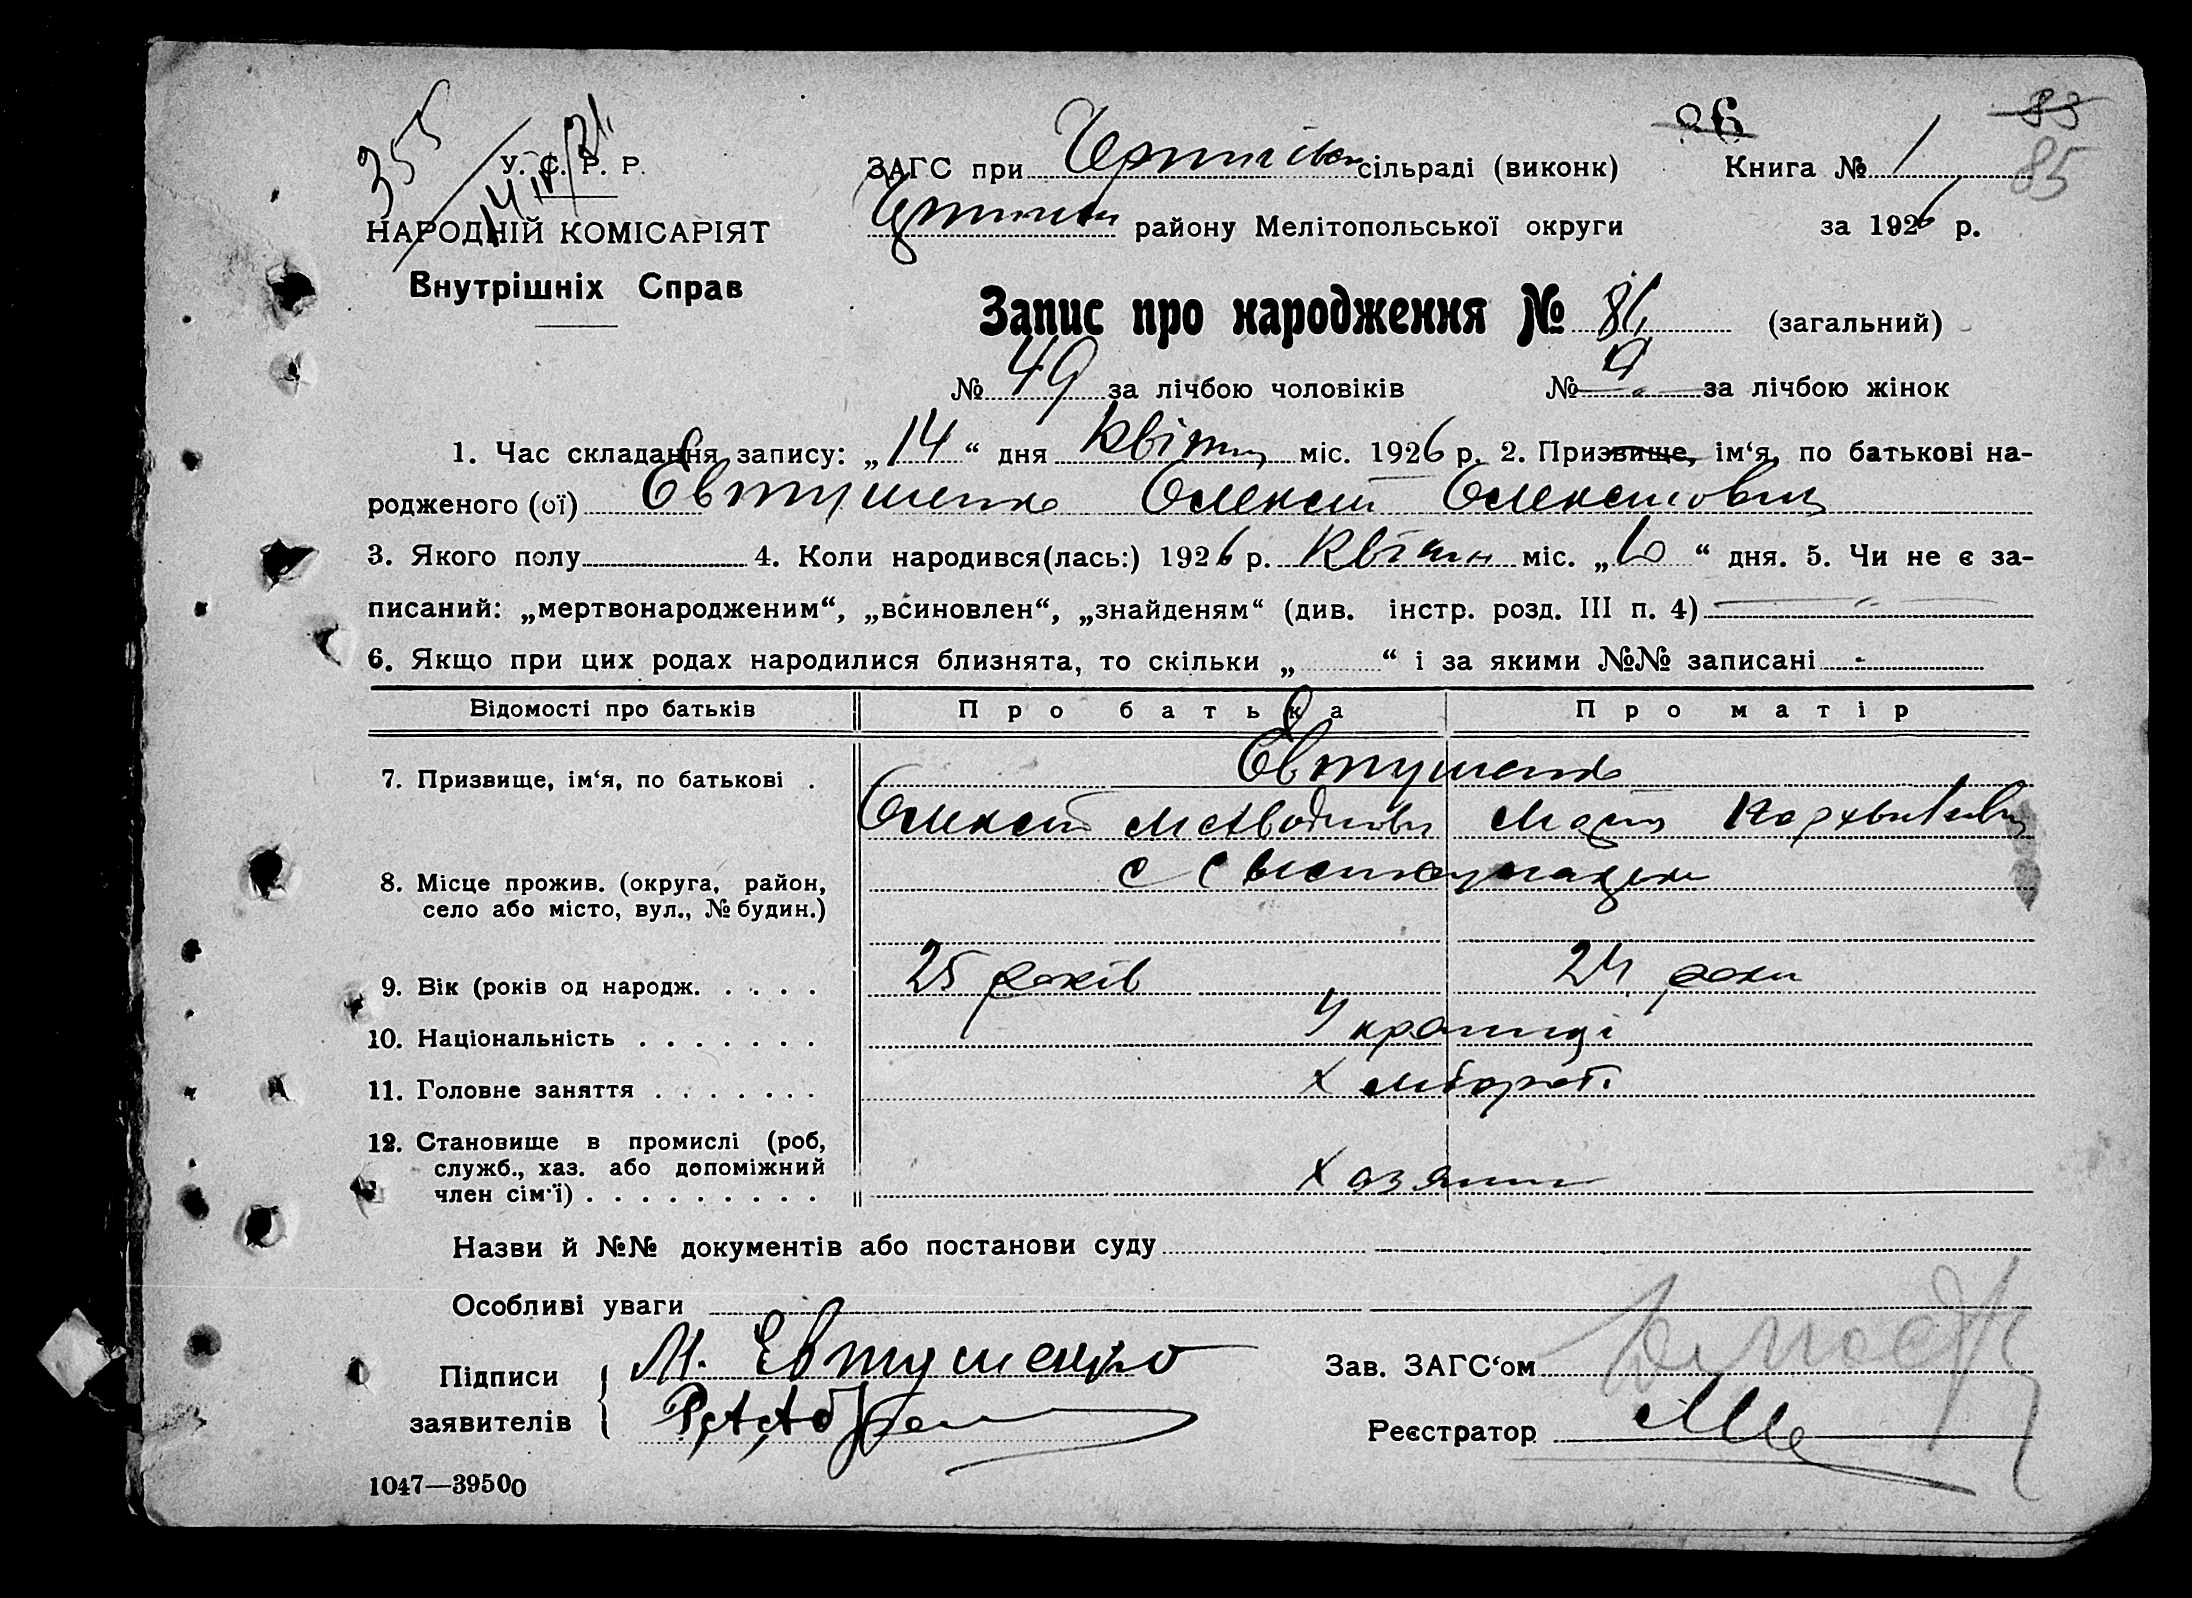 355
26
83
85
У. С. Р. Р.
НАРОДНІЙ КОМІСАРІЯТ
Внутрішніх Справ
ЗАГС при сільраді (виконк) Книга № 1
району Мелітопольської округи за 1926 р.
Запис про народження № (загальний)
№ 49 за лічбою чоловіків № за лічбою жінок
1. Час складання запису: „14“ дня Квітня міс. 1926 р. 2. Призвище, ім‘я, по батькові на-
родженого (ої) Евтушенко Олексій Олексійович
3. Якого полу 4. Коли народився(лась:) 1926 р. Квітня міс. „6“ дня. 5. Чи не є за-
писаний: „мертвонародженим“, „всиновлен“, „знайденям“ (див. інстр. розд. III п. 4)
6. Якщо при цих родах народилися близнята, то скільки „ “ і за якими №№ записані -
Відомості про батьків Про батька Про матір
7. Призвище, ім‘я, по батькові . Евтушенко
Олексій
8. Місце прожив. (округа, район,
село або місто, вул., № будин.)
9. Вік (років од народж. . . . . 25 років 24 роки
10. Національність . . . . . . . Українці
11. Головне заняття . . . . . . . Хлібороб
12. Становище в промислі (роб,
служб., хаз. або допоміжний
член сім‘ї) . . . . . . . . . Хозяин
Назви й №№ документів або постанови суду
Особливі уваги
Підписи М. Евтушенко Зав. ЗАГС‘ом
заявителів Реєстратор
1047—39500